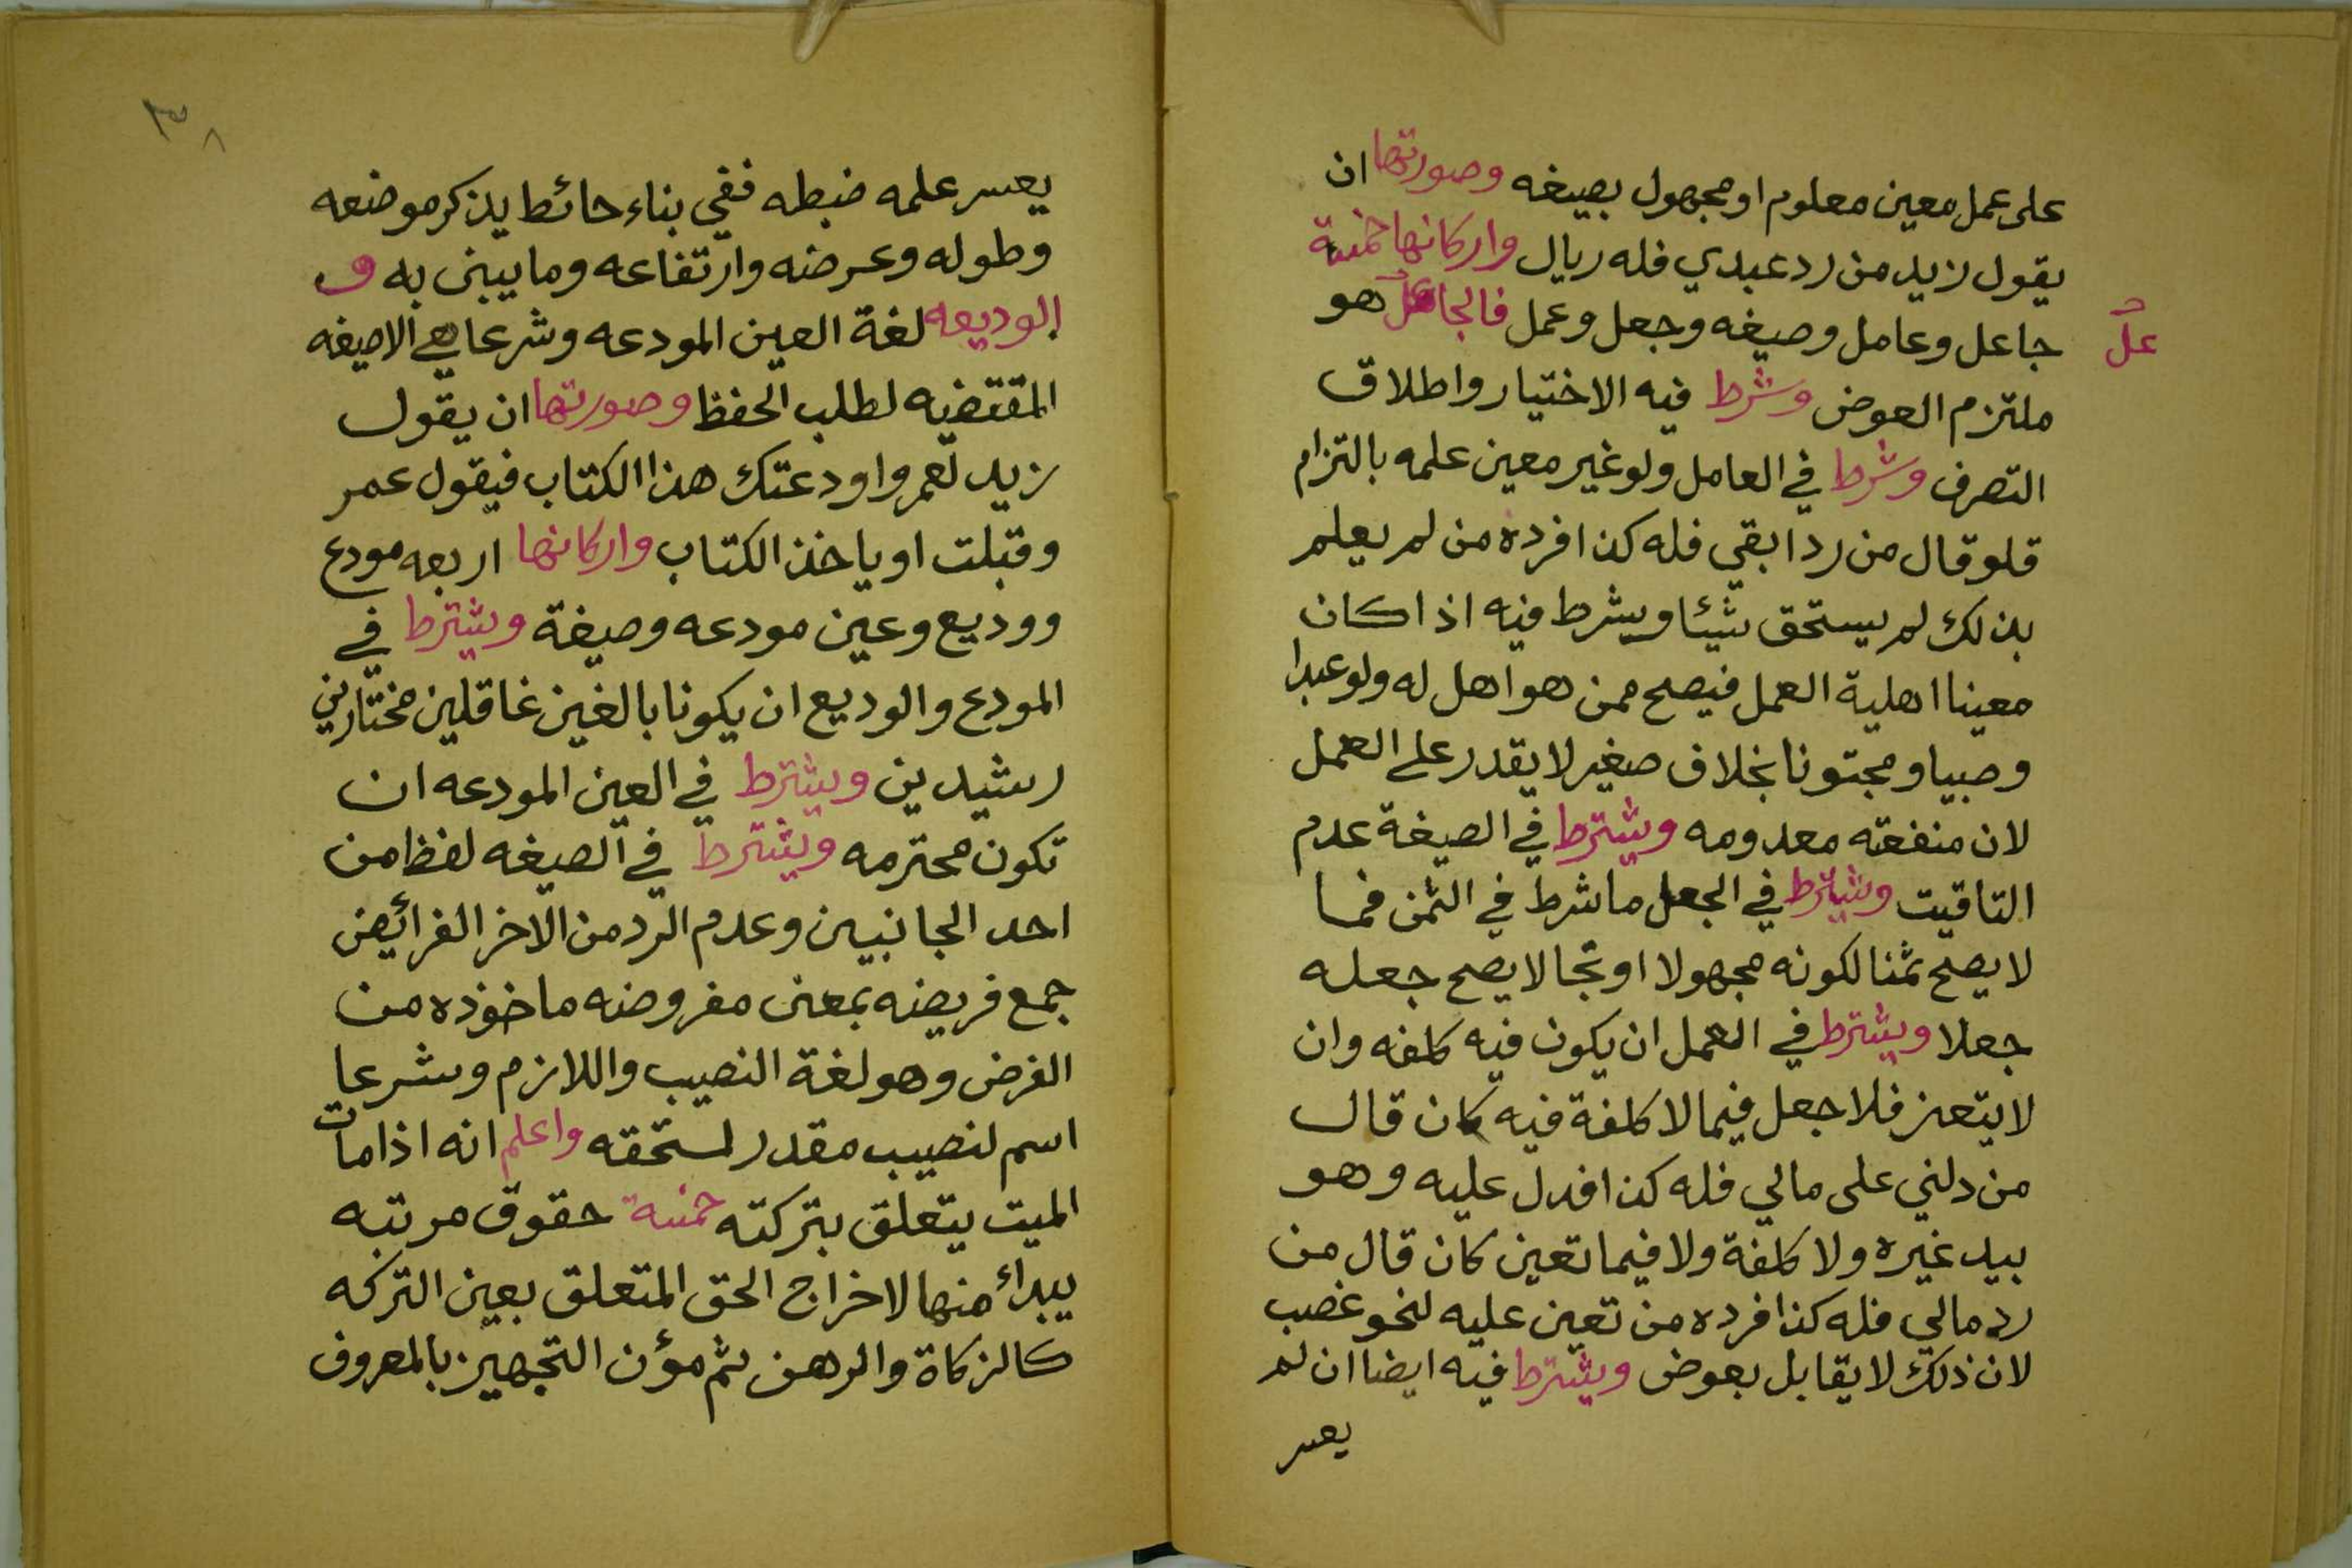 على عمل معين معلوم او مجهول بصيغه وصورتها ان
يقول زيد من رد عبدي فله ريال واركانها خمسة
جاعل وعامل وصيغه وجعل وعمل فالجاعل هو
عل
ملتزم العوض وشرط فيه الاختيار واطلاق
التصرف وشرط في العامل ولو غير معين علمه بالتزام
قلو قال من رد ابقي فله كذا فرده من لم يعلم
بذلك لم يستحق شيئا ويشرط فيه اذا كان
معينا اهلية العمل فيصح ممن هو اهل له ولو عبدا
وصبيا ومجنونا بخلاف صغير لا يقدر على العمل
لان منفعته معدومه ويشترط في الصيغة عدم
التاقيت ويشترط في الجعل ما شرط في الثمن فما
لا يصح ثمنا لكونه مجهولا او نجا لا يصح جعله
جعلا ويشترط في العمل ان يكون فيه كلفه وان
لا يتعين فلا جعل فيما لا كلفة فيه كان قال
من دلني على مالي فله كذا فدل عليه وهو
بيد غيره ولا كلفة ولا فيما تعين كان قال من
رد مالي فله كذا فرده من تعين عليه لنحو غصب
لان ذلك لا يقابل بعوض ويشترط فيه ايضا ان لم
يعسر
٣٨
يعسر علمه ضبطه ففي بناء حائط يذكر موضعه
وطوله وعرضه وارتفاعه وما يبنى به و
الوديعه لغة العين المودعه وشرعا هي الاصيغه
المقتضيه لطلب الحفظ وصورتها ان يقول
زيد لعمرو اودعتك هذا الكتاب فيقول عمر
وقبلت او ياخذ الكتاب واركانها اربعه مودع
ووديع وعين مودعه وصيغة ويشترط في
المودع والوديع ان يكونا بالغين غاقلين مختارين
رشيدين ويشترط في العين المودعه ان
تكون محترمه ويشترط في الصيغه لفظا من
احد الجانبين وعدم الرد من الاخر الفرائض
جمع فريضه بمعنى مفروضه ماخوذه من
الفرض وهو لغة النصيب واللازم وشرعا
اسم لنصيب مقدر لمستحقه واعلم انه اذا مات
الميت يتعلق بتركته خمسة حقوق مرتبه
يبداء منها لاخراج الحق المتعلق بعين التركه
كالزكاة والرهن ثم مؤن التجهيز بالمعروف